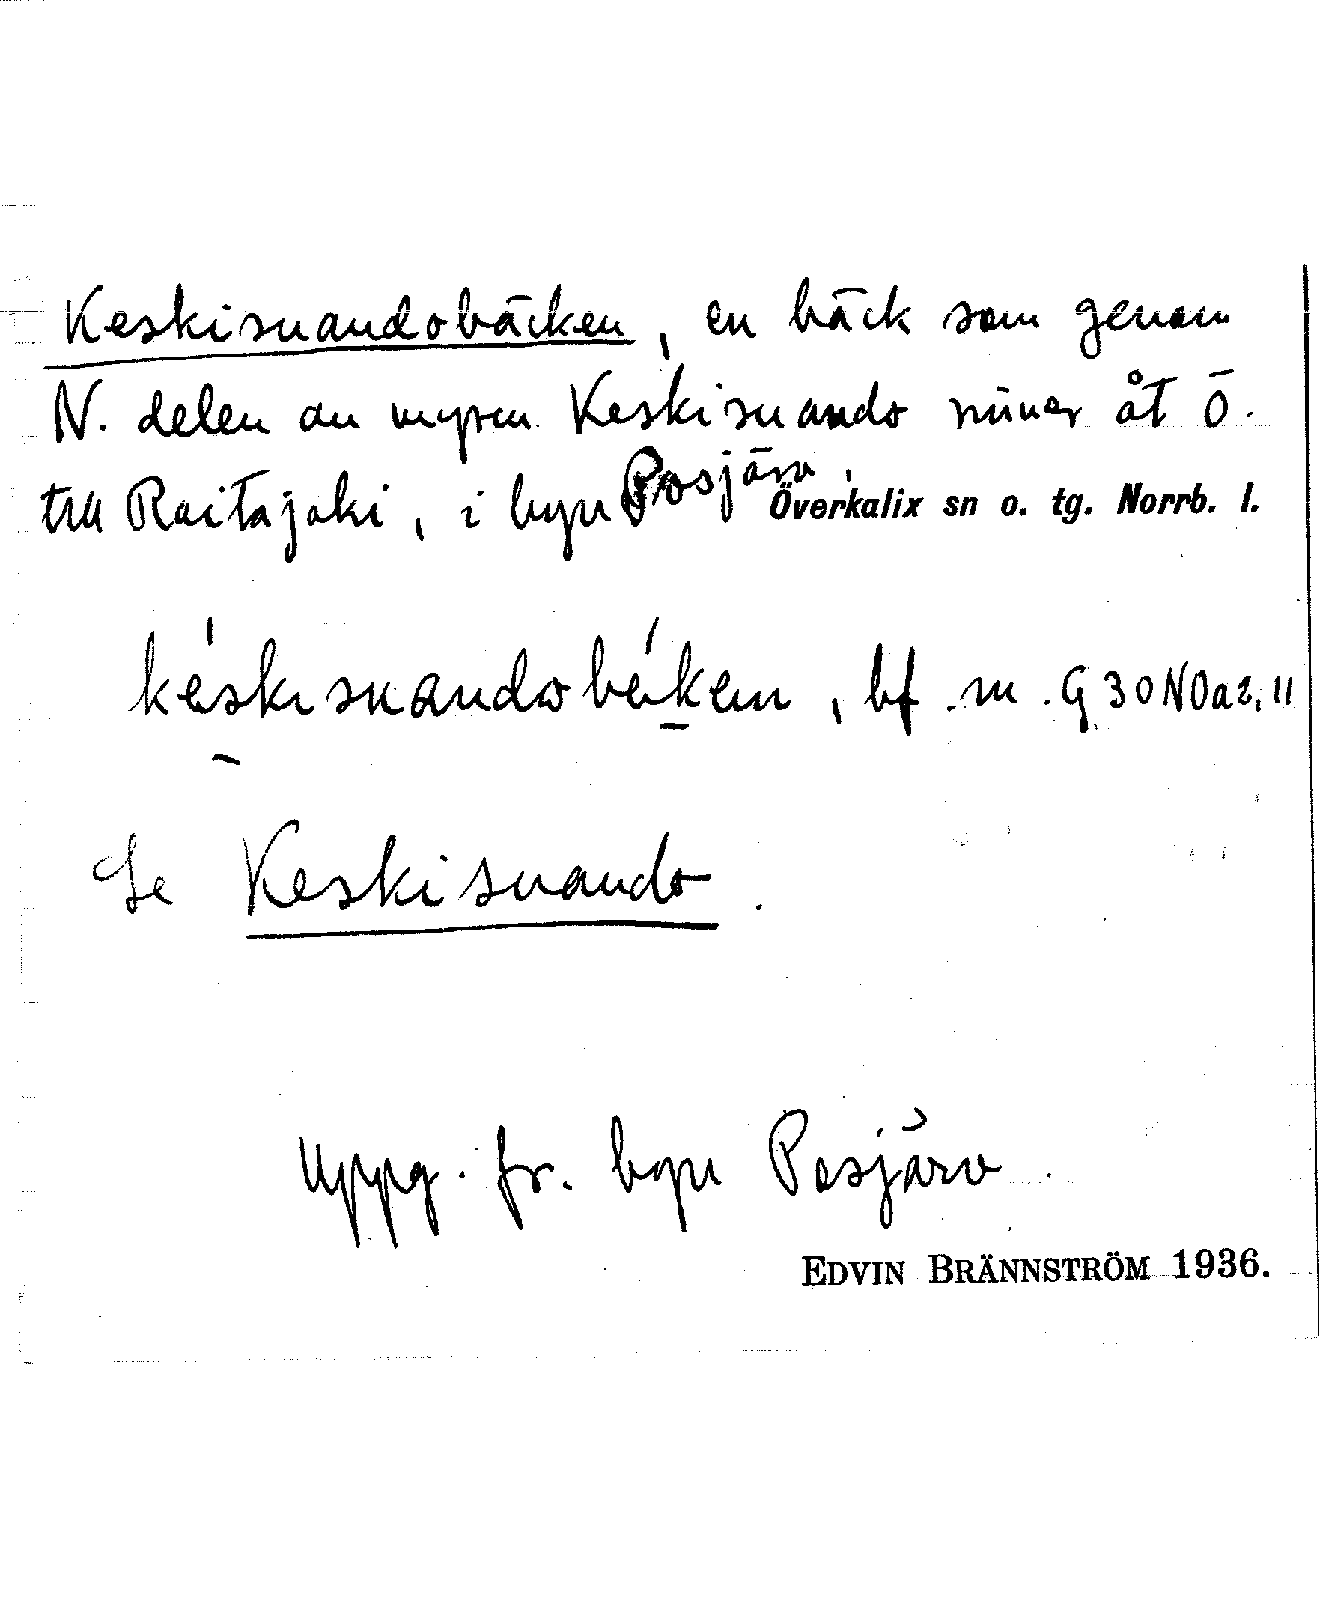 Keskisuandobäcken, en bäck som genom
N. delen av myren Keskisuando rinner åt Ö.
till Raitajoki, i byn Posjärv, Överkalix sn o. tg. Norrb. l.
bf. m. G 30 NOa2, 11
Se Keskisuando.
Uppg. fr. byn Posjärv
EDVIN BRÄNNSTRÖM 1936.